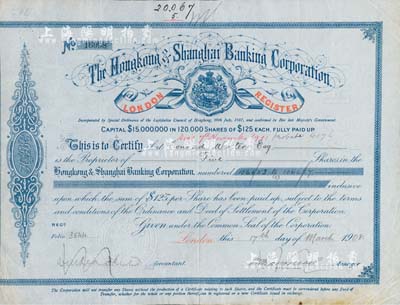 20067
5
No
The Hongkong & Shanghai Banking Corporation.
LONDON REGISTER
Incorporated by Special Ordinance of the Legislative Council of Hongkong,
CAPITAL $15,000,000 IN 120,000 SHARES OF $125 EACH, FULLY PAID UP
This is to Certify that Esq
is the Proprietor of Five Shares in the
Hongkong & Shanghai Banking Corporation, numbered
inclusive
upon which the sum of $125 per Share has been paid up, subject to the terms
and conditions of the Ordinance and Deed of Settlement of the Corporation.
Given under the Common Seal of the Corporation.
REGT
Folio
London this 17th day of March 1908
Accountant
Manager
The Corporation will not transfer any Shares without the production of a Certificate relating to such Shares, and the Certificate must be surrendered before any Deed of
Transfer, whether for the whole or any portion thereof, can be registered or a new Certificate issued in exchange.